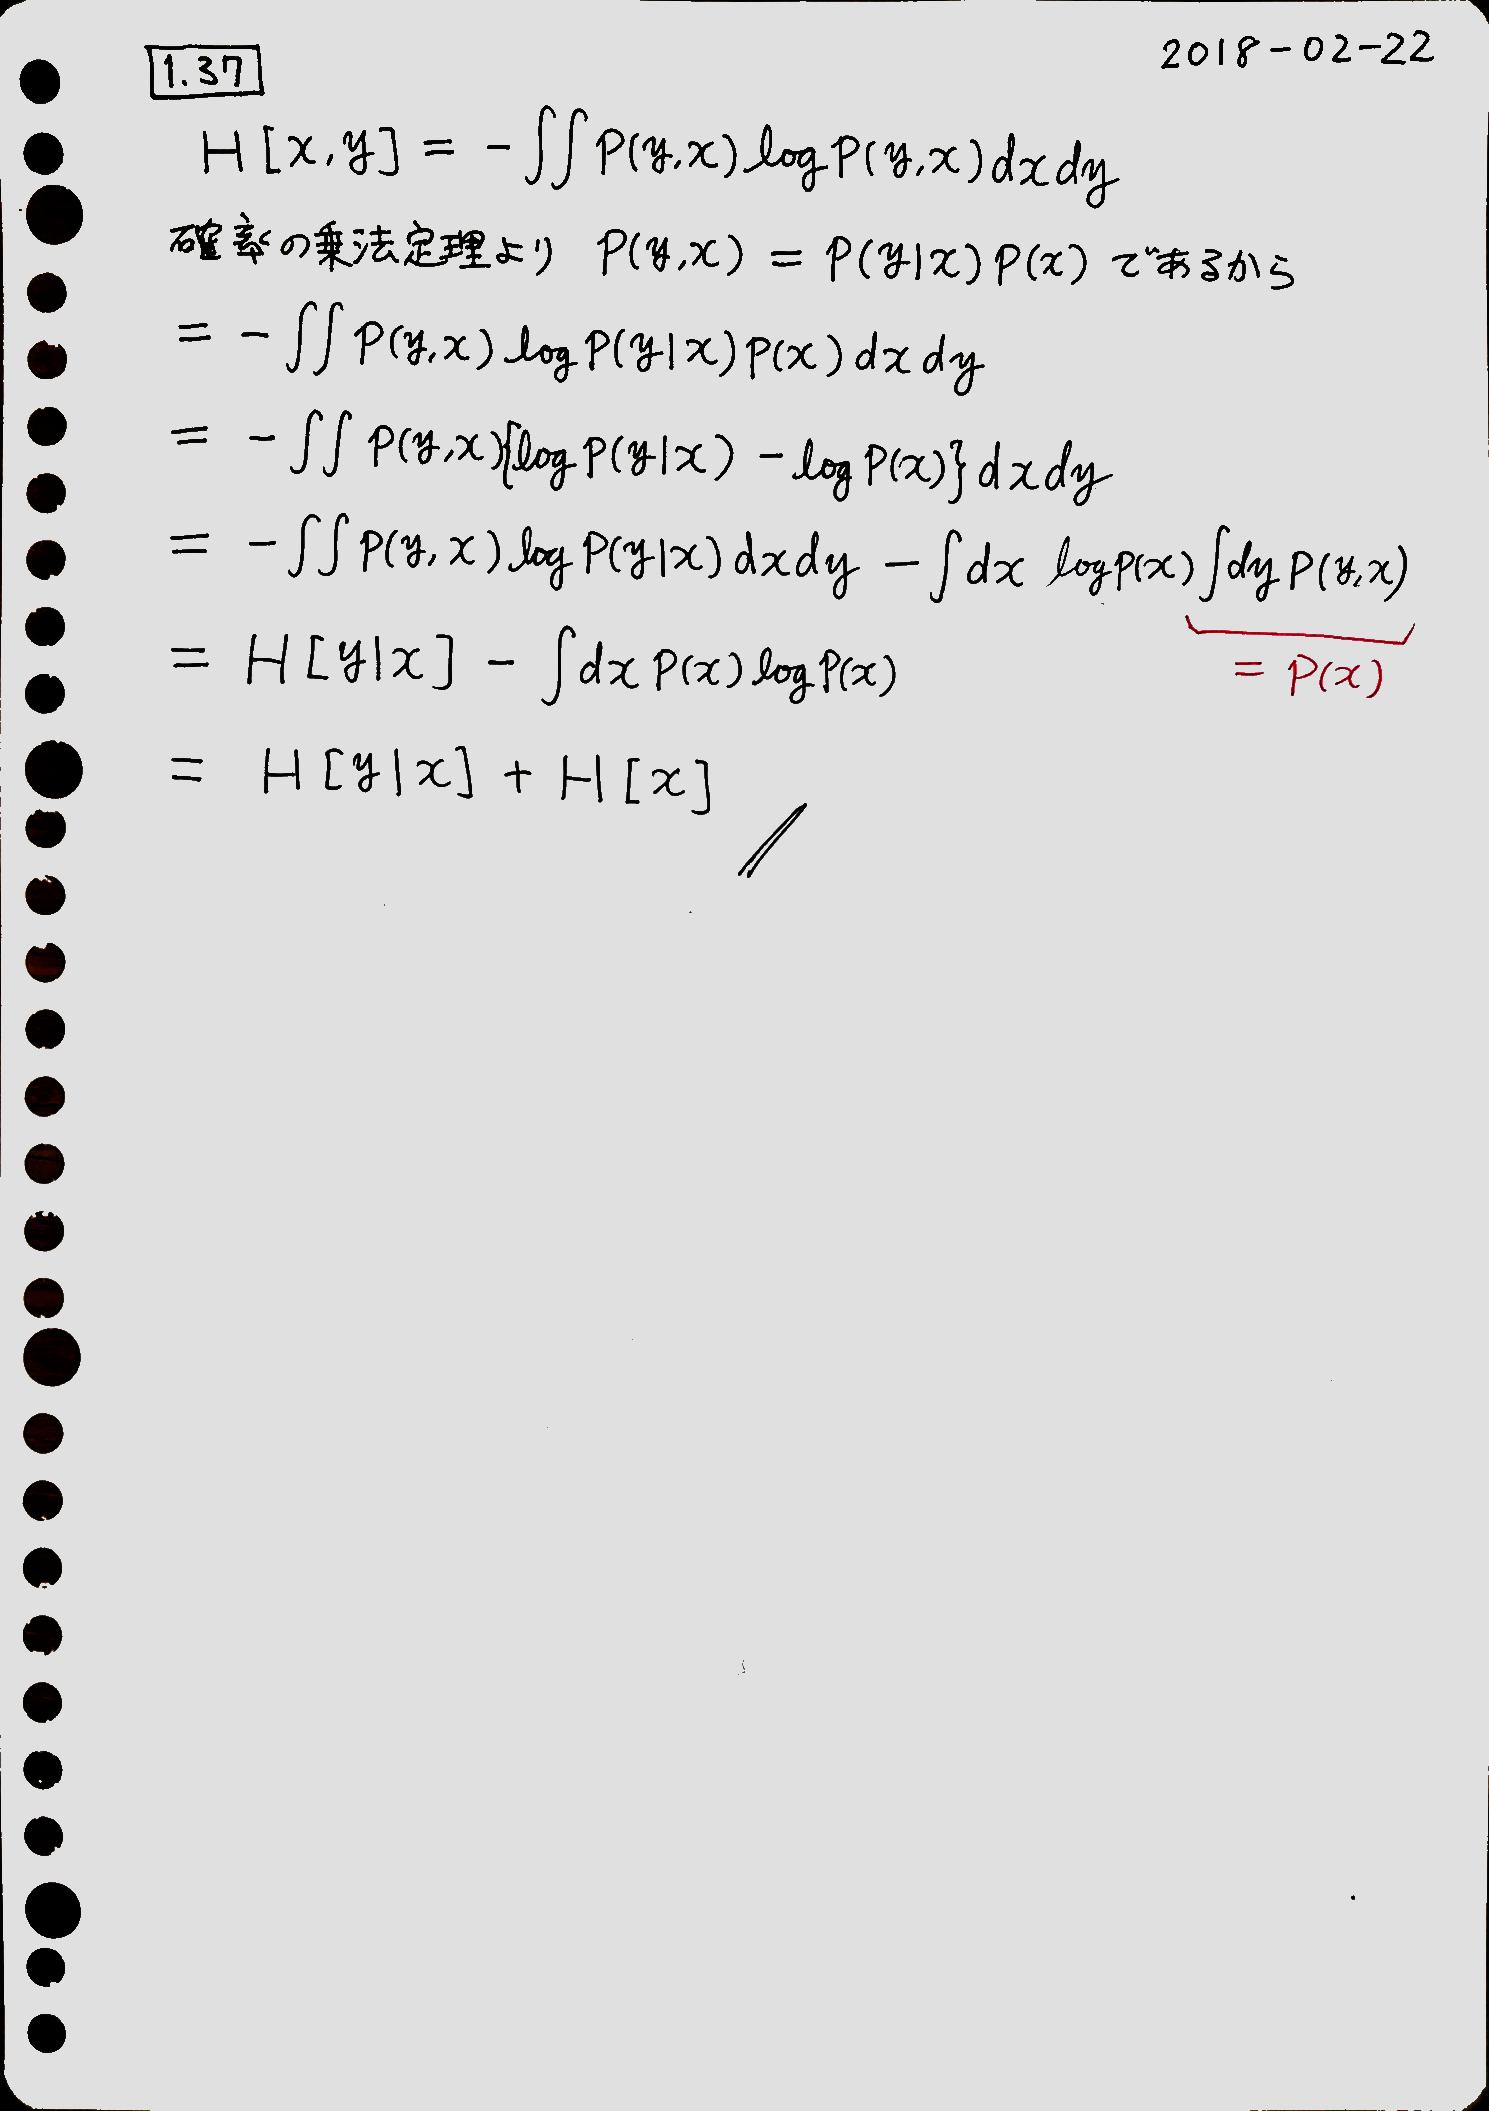 1.37 2018-02-22
H[x,y] = -∬P(y,x)logP(y,x)dxdy
確率の乗法定理より P(y,x) = P(y|x)P(x) であるから
= -∬P(y,x)logP(y|x)P(x)dxdy
= -∬P(y,x){logP(y|x) - logP(x)}dxdy
= -∬P(y,x)logP(y|x)dxdy - ∫dx logP(x)∫dyP(y,x)
= H[y|x] - ∫dxP(x)logP(x) = P(x)
= H[y|x] + H[x]